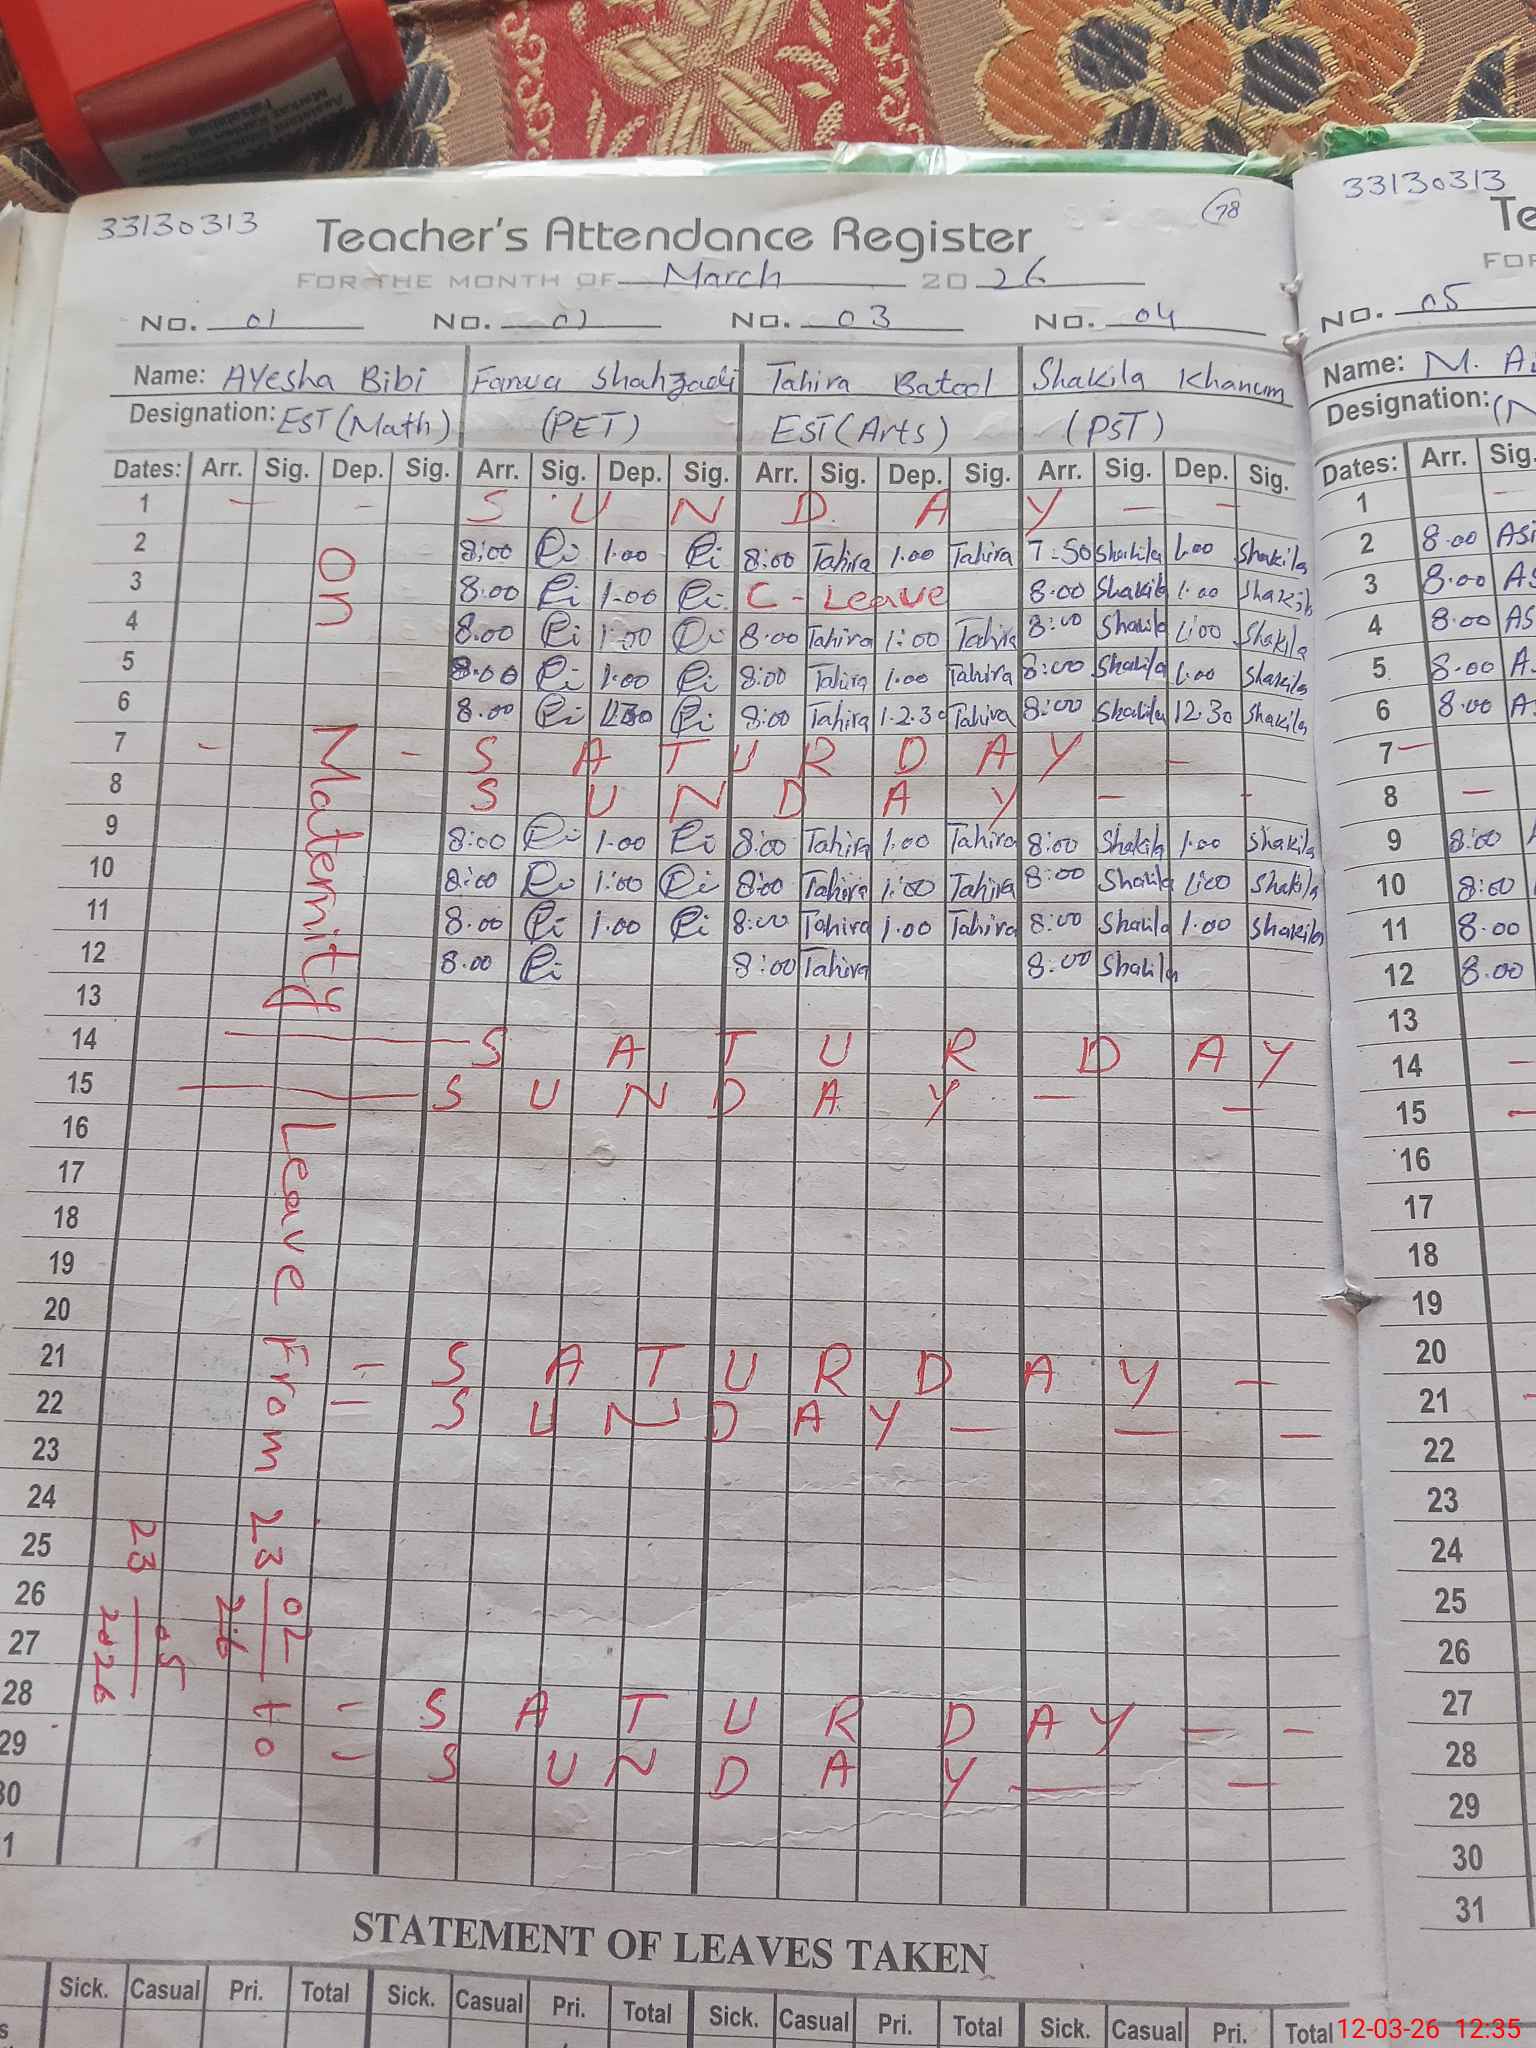 33130313
78
Teacher's Attendance Register
FOR THE MONTH OF March 20 26
No. 01 No. 02 No. 03 No. 04
Name: AYesha Bibi Shahzadi Tahira Batool Shakila Khanum
Designation: EST (Math) (PET) EST (Arts) (PST)
Dates: Arr. Sig. Dep. Sig. Arr. Sig. Dep. Sig. Arr. Sig. Dep. Sig. Arr. Sig. Dep. Sig.
1 - - S U N D A Y - -
2 8:00 1.00 8:00 Tahira 1.00 Tahira 7-50 Shakila 1.00 Shakila
3 8.00 1.00 C - Leave 8.00 Shakila 1.00 Shakila
4 8.00 1:00 8.00 Tahira 1:00 Tahira 8:00 Shakila 1:00 Shakila
5 8.00 1.00 8:00 Tahira 1.00 Tahira 8:00 Shakila 1.00 Shakila
6 8.00 8:00 Tahira 12.30 Tahira 8:00 Shakila 12.30 Shakila
7 - - S A T U R D A Y -
8 S U N D A Y - -
9 8:00 1.00 8:00 Tahira 1.00 Tahira 8:00 Shakila 1.00 Shakila
10 8:00 1:00 8:00 Tahira 1:00 Tahira 8:00 Shakila 1:00 Shakila
11 8.00 1.00 8:00 Tahira 1.00 Tahira 8:00 Shakila 1.00 Shakila
12 8.00 8:00 Tahira 8:00 Shakila
13
14 S A T U R D A Y
15 S U N D A Y - -
16
17
18
19
20
21 - S A T U R D A Y -
22 - S U N D A Y - - -
23
24
25
26
27
28 - S A T U R D A Y - -
29 - S U N D A Y - -
30
1
On Maternity Leave From 23 02 26 to
23 05 2026
STATEMENT OF LEAVES TAKEN
Sick. Casual Pri. Total Sick. Casual Pri. Total Sick. Casual Pri. Total Sick. Casual Pri. Total
33130313
Te
FOR
No. 05
Name: M.
Designation:
Dates: Arr. Sig.
1 -
2 8.00
3 8.00
4 8.00
5 8.00
6 8:00
7 -
8 -
9 8:00
10 8:00
11 8.00
12 8.00
13
14 -
15 -
16
17
18
19
20
21 -
22
23
24
25
26
27
28
29
30
31
12-03-26 12:35